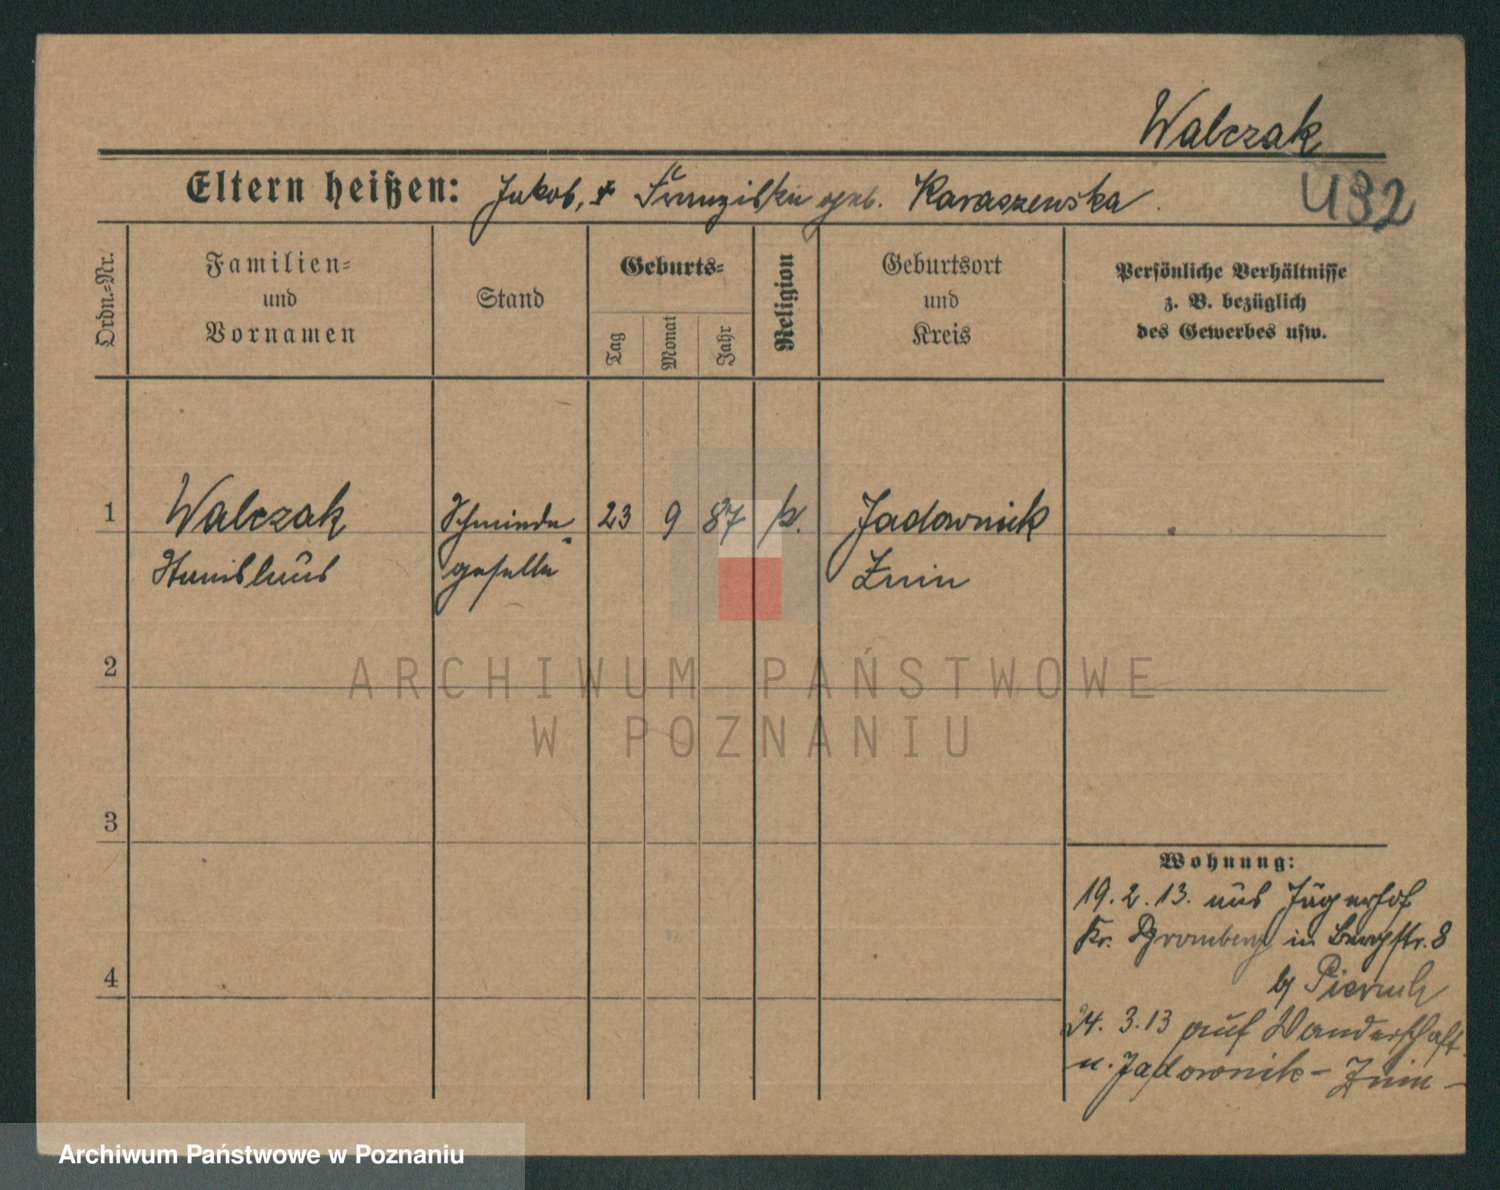 Walczak
Eltern heißen: Jakob, u. Franziska geb. Karaszewska.
432
Ordn.-Nr.
Familien-
und
Vornamen
Stand
Geburts-
Tag
Monat
Jahr
Religion
Geburtsort
und
Kreis
Persönliche Verhältnisse
z. B. bezüglich
des Gewerbes usw.
1
Walczak
Schmiede
23
9
87
k.
Jadownik
Stanislaus
geselle
Znin
2
ARCHIWUM PAŃSTWOWE
W POZNANIU
3
Wohnung:
19. 2. 13. aus Jägerhof
Kr. Bromberg in Bergstr. 8
4
24. 3. 13 auf Wanderschaft
n. Jadownik - Znin -
Archiwum Państwowe w Poznaniu